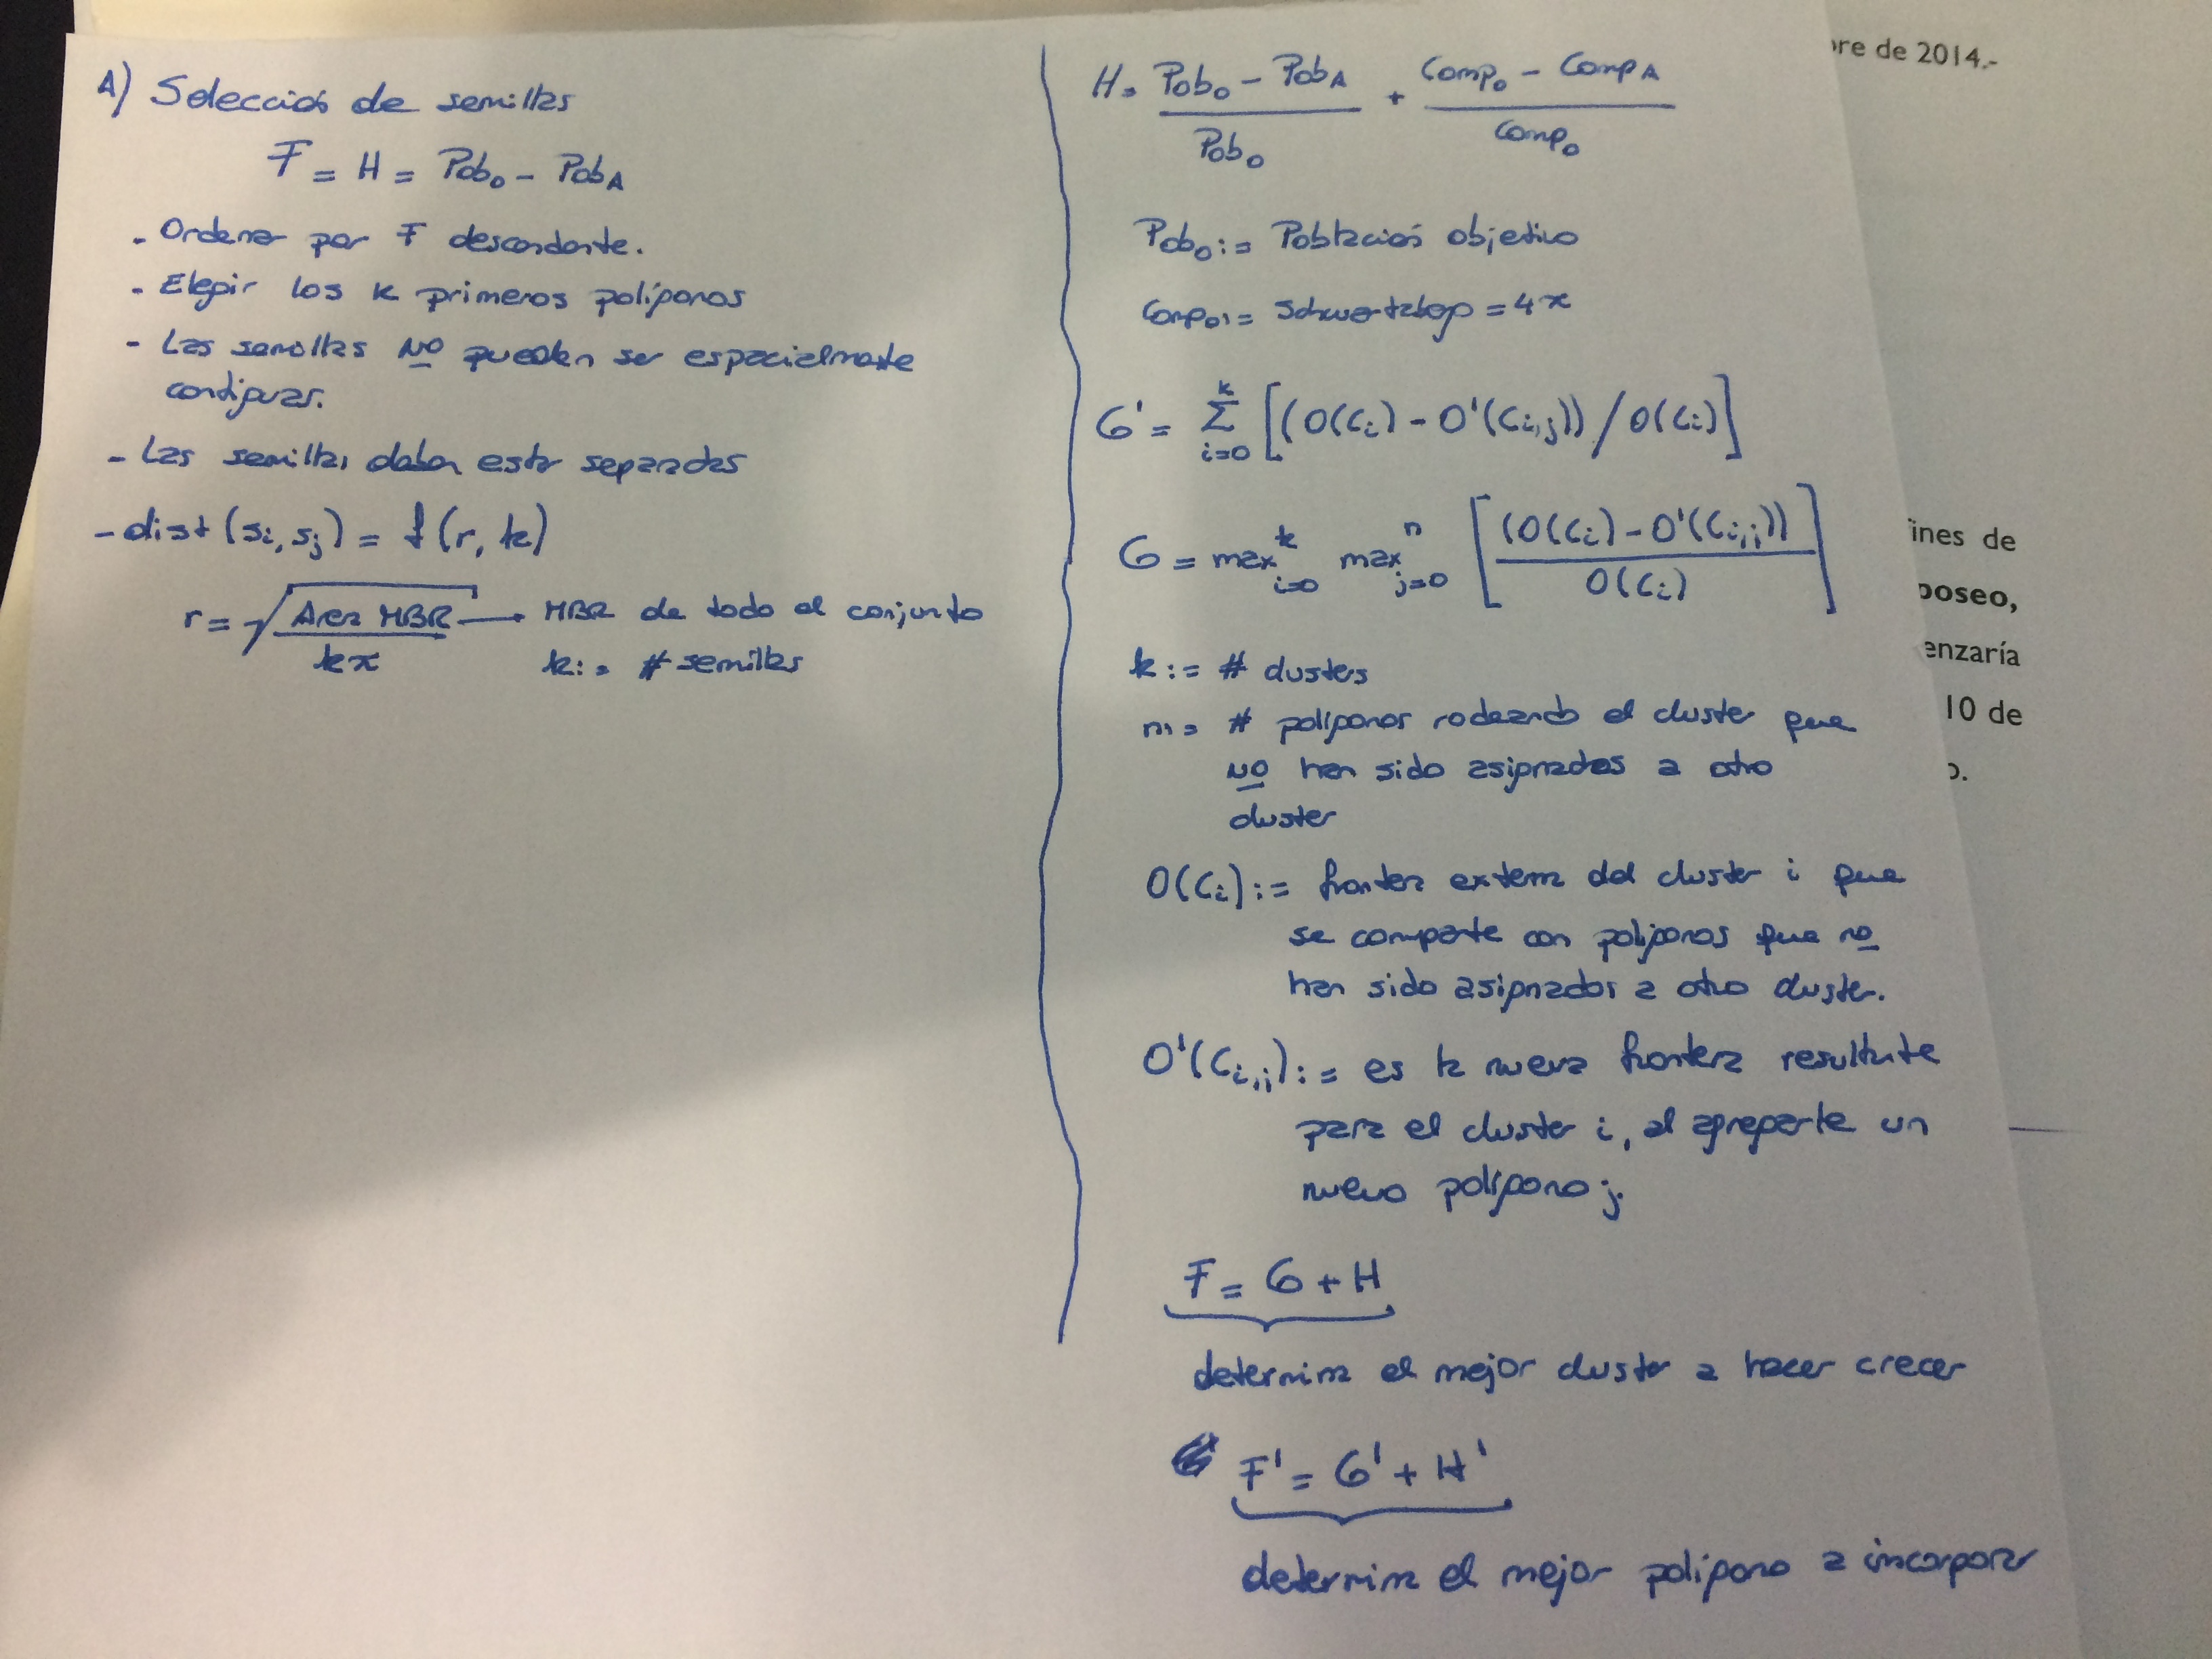 A) Selección de semillas
F = H = Pob₀ - Pob_A
- Ordenar por F descendente.
- Elegir los k primeros polígonos
- Las semillas NO pueden ser espacialmente
contiguas.
- Las semillas deben estar separadas
- dist (si, sj) = f(r, k)
r = √(Area MBR / kπ) → MBR de todo el conjunto
k := # semillas
H = (Pob₀ - Pob_A) / Pob₀ + (Comp₀ - Comp_A) / Comp₀
Pob₀ := Población objetivo
Comp₀ := Schwartzberg = 4π
G' = Σ_{i=0}^{k} [(O(Ci) - O'(Ci,j)) / O(Ci)]
G = max_{i=0}^{k} max_{j=0}^{n} [(O(Ci) - O'(Ci,j)) / O(Ci)]
k := # clusters
n := # polígonos rodeando el cluster que
NO han sido asignados a otro
cluster
O(Ci) := frontera externa del cluster i que
se comparte con polígonos que no
han sido asignados a otro cluster.
O'(Ci,j) := es la nueva frontera resultante
para el cluster i, al agregarle un
nuevo polígono j.
F = G + H
determina el mejor cluster a hacer crecer
F' = G' + H'
determina el mejor polígono a incorporar
re de 2014.-
ines de
poseo,
enzaría
10 de
o.